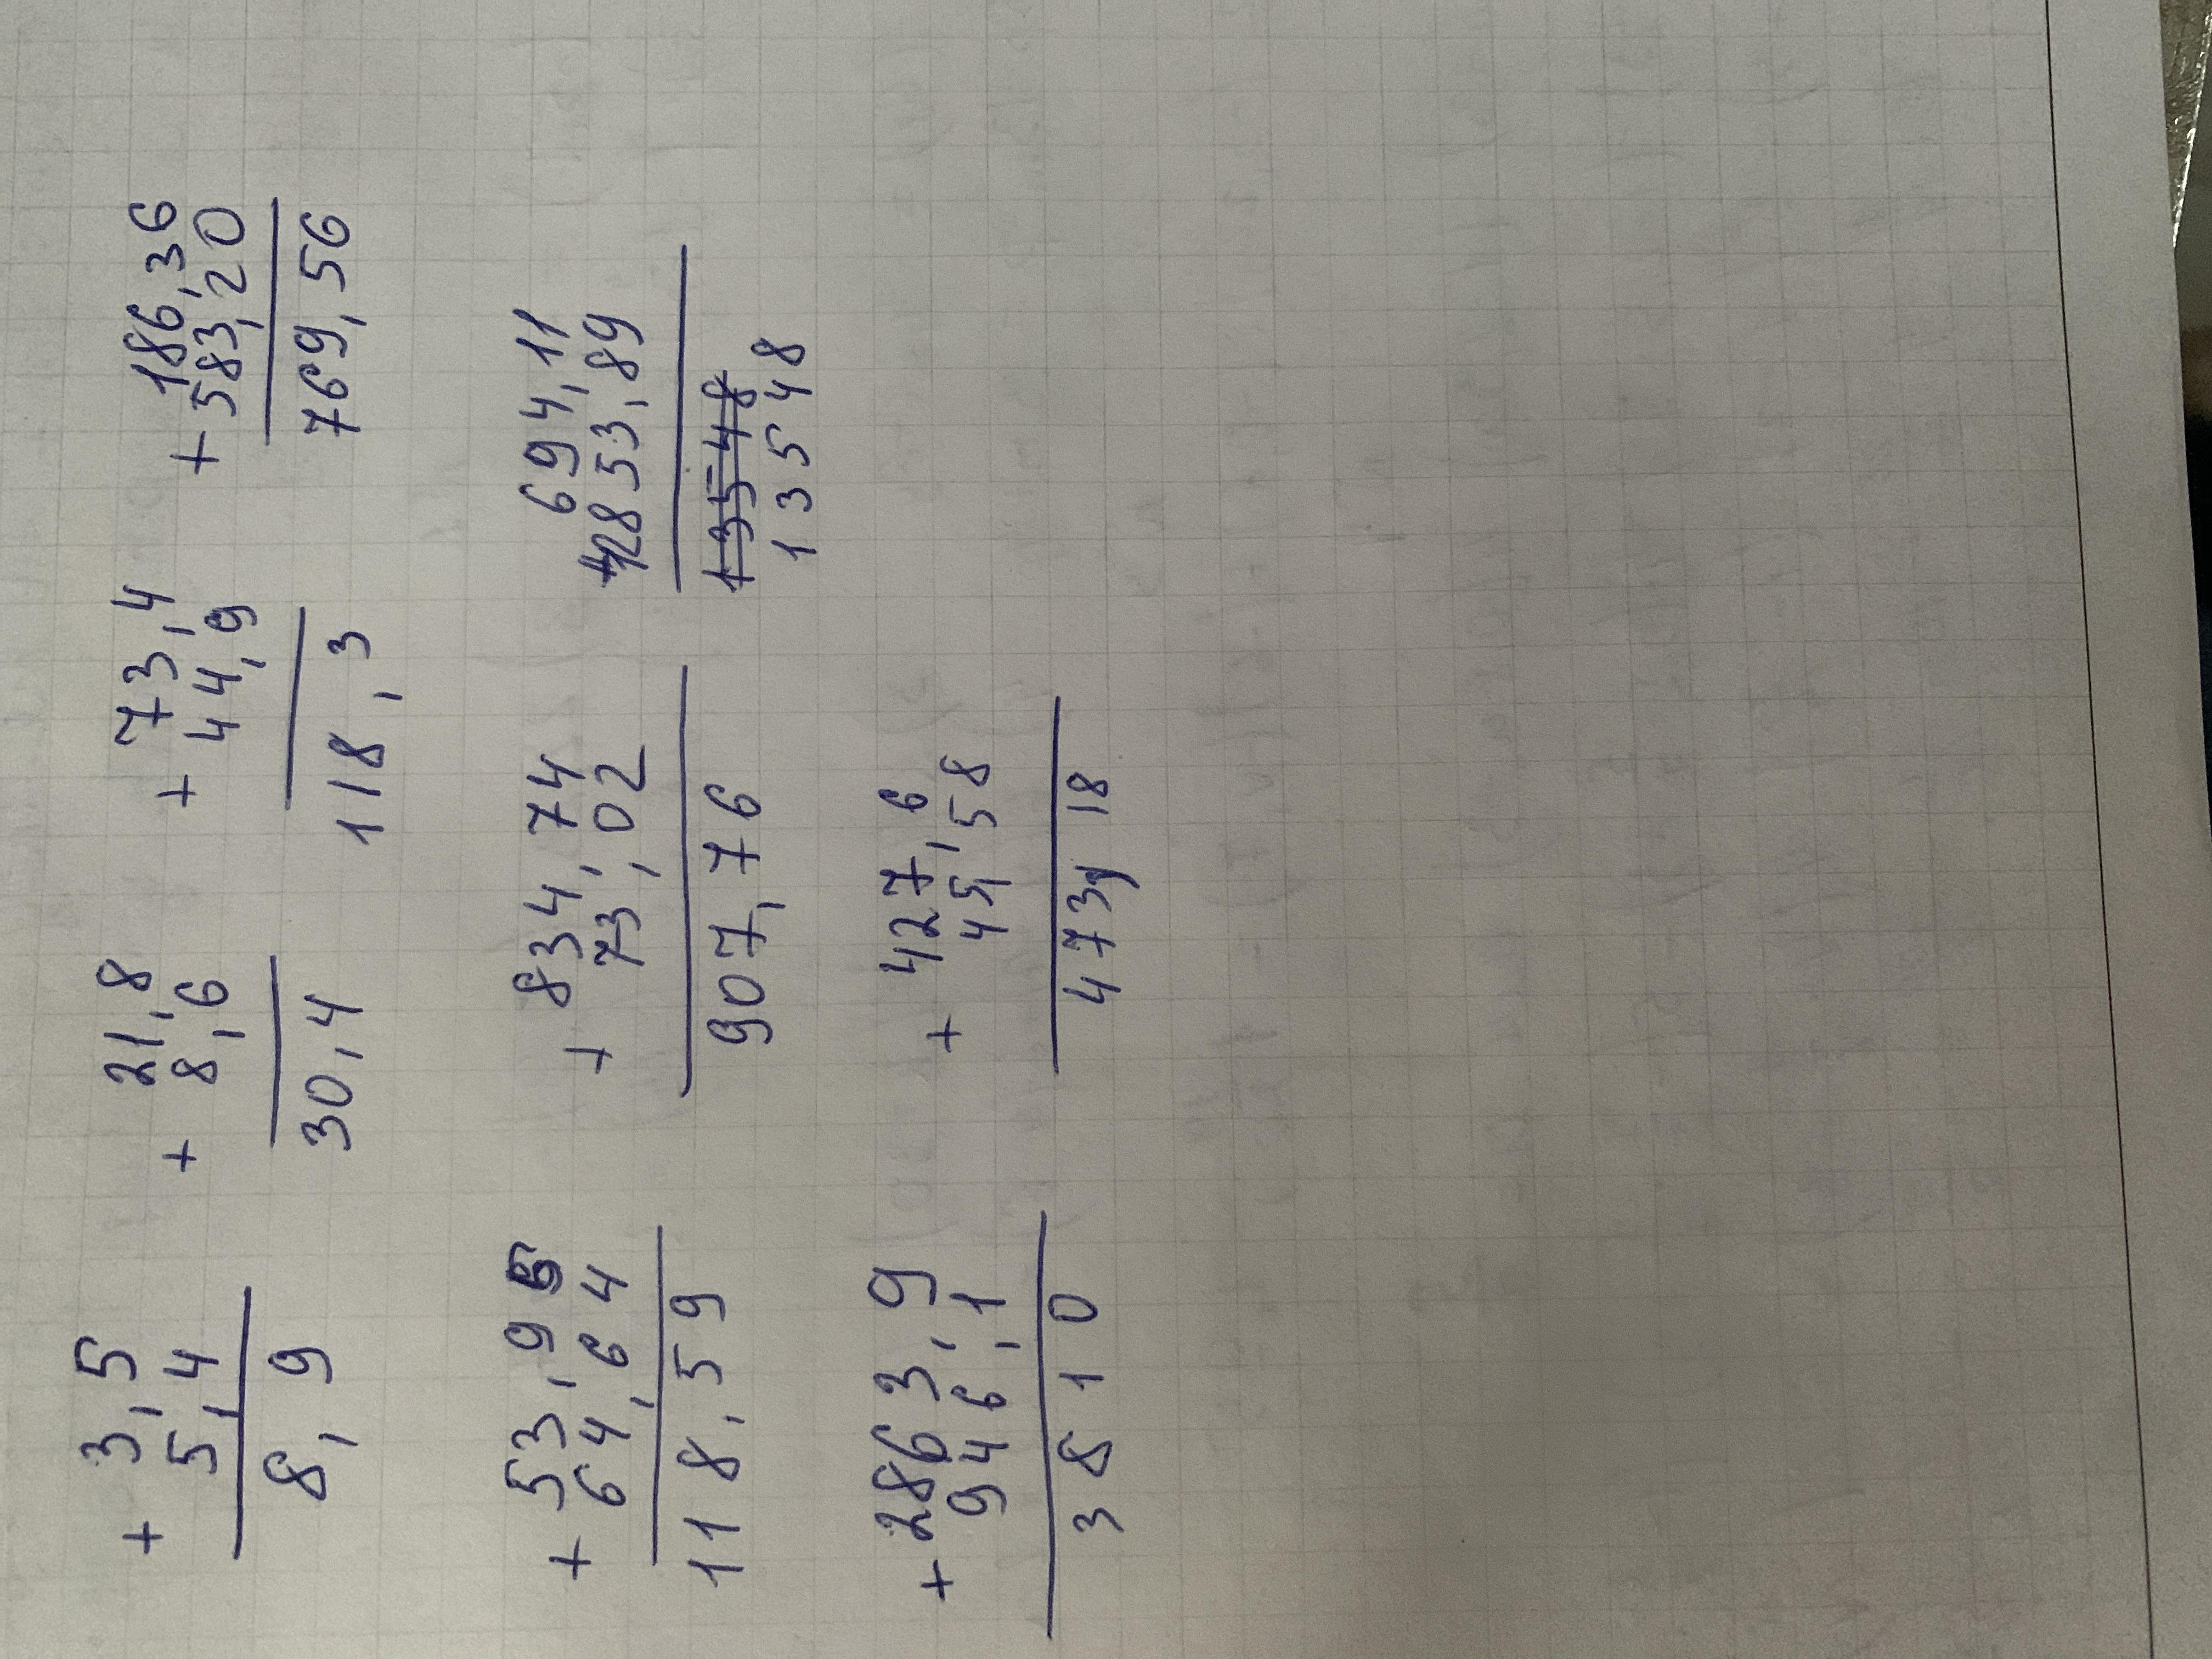 + 3,5
5,4
8,9
21,8
+ 8,6
30,4
73,4
+ 44,9
118,3
186,36
+ 583,20
769,56
53,95
+ 64,64
118,59
834,74
+ 73,02
907,76
694,11
+12853,89
13548
13548
2863,9
+ 946,1
3810
427,6
+ 45,58
473,18